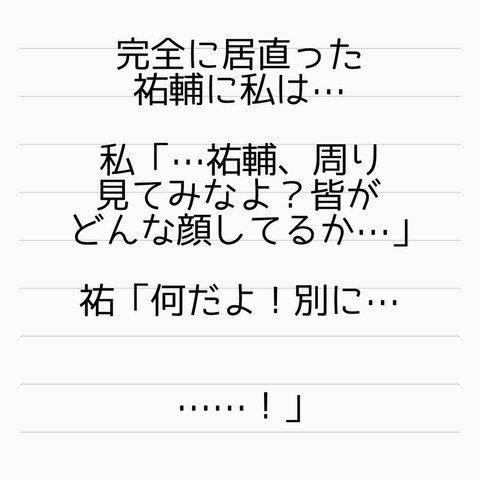 完全に居直った
祐輔に私は…
私「…祐輔、周り
見てみなよ？皆が
どんな顔してるか…」
祐「何だよ！別に…
……！」